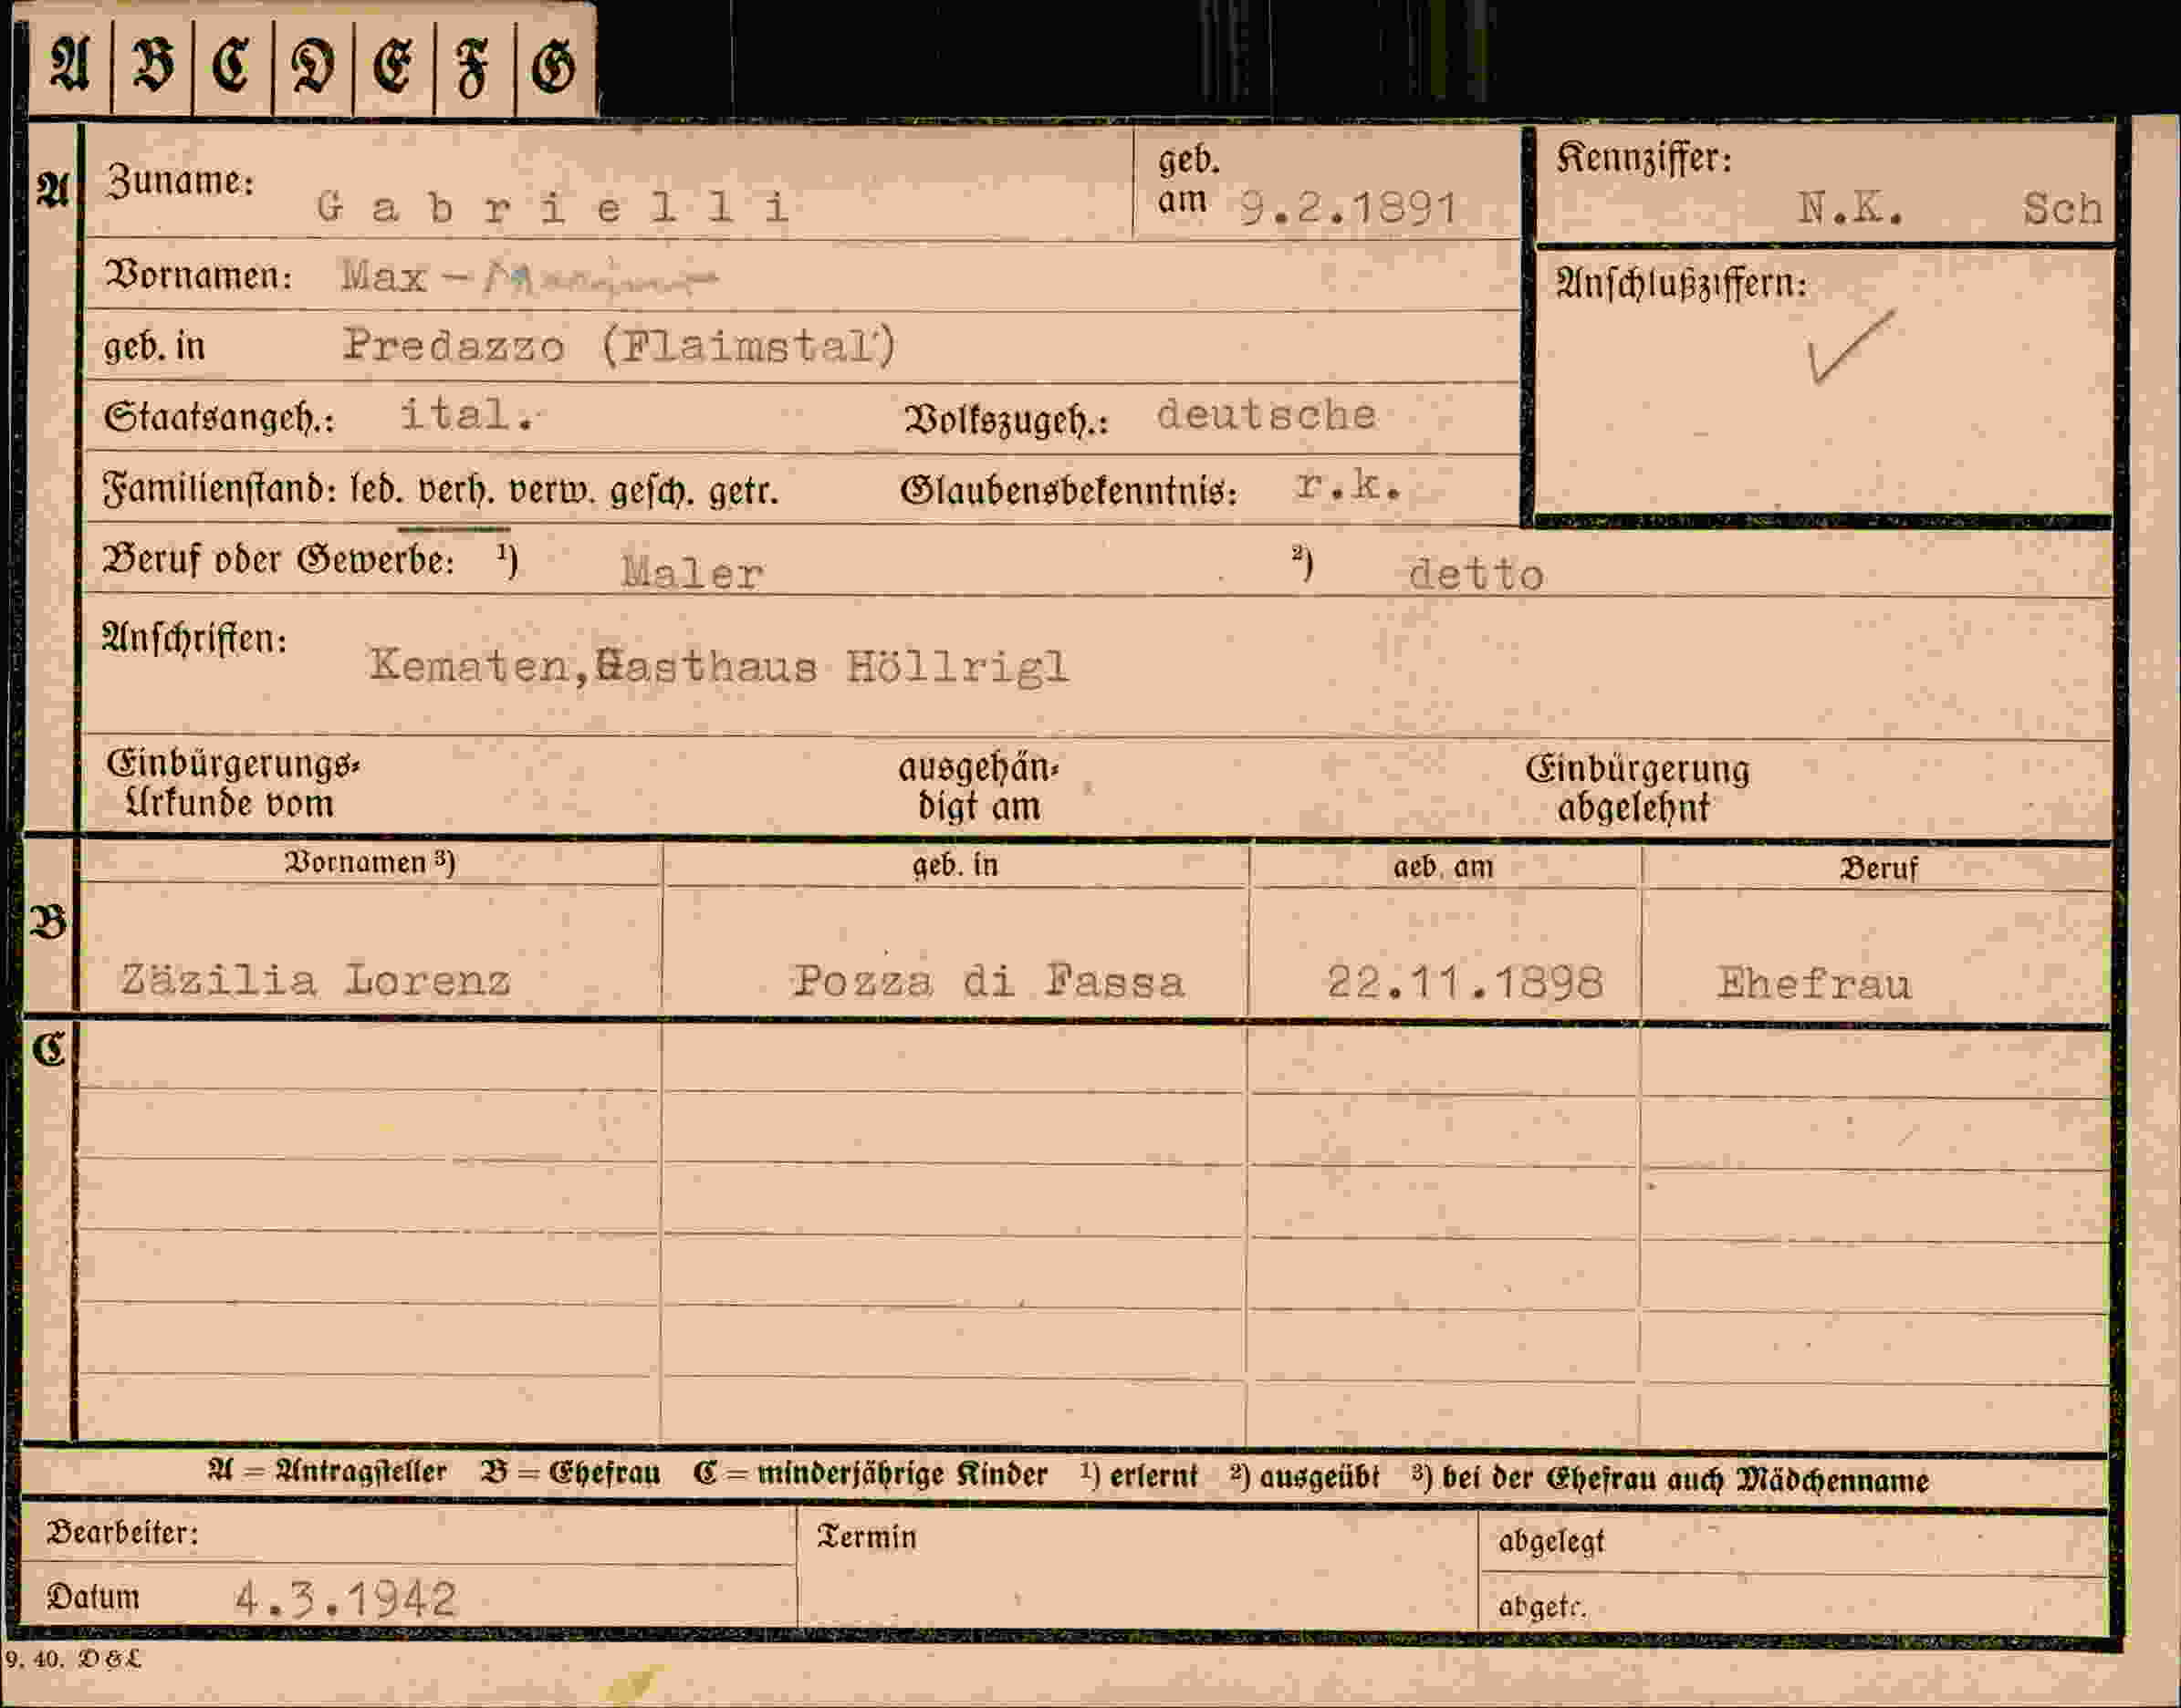 A B C D E F G
A Zuname: Gabrielli geb. am 9.2.1891 Kennziffer: N.K. Sch
Vornamen: Max - Anschlußziffern:
geb. in Predazzo (Flaimstal)
Staatsangeh.: ital. Volkszugeh.: deutsche
Familienstand: led. verh. verw. gesch. getr. Glaubensbekenntnis: r.k.
Beruf oder Gewerbe: 1) Maler 2) detto
Anschriften: Kematen,Gasthaus Höllrigl
Einbürgerungs- ausgehän- Einbürgerung
Urkunde vom digt am abgelehnt
Vornamen 3) geb. in geb. am Beruf
B
Zäzilia Lorenz Pozza di Fassa 22.11.1898 Ehefrau
C
A = Antragsteller B = Ehefrau C = minderjährige Kinder 1) erlernt 2) ausgeübt 3) bei der Ehefrau auch Mädchenname
Bearbeiter: Termin abgelegt
Datum 4.3.1942 abgetr.
9. 40. D & L